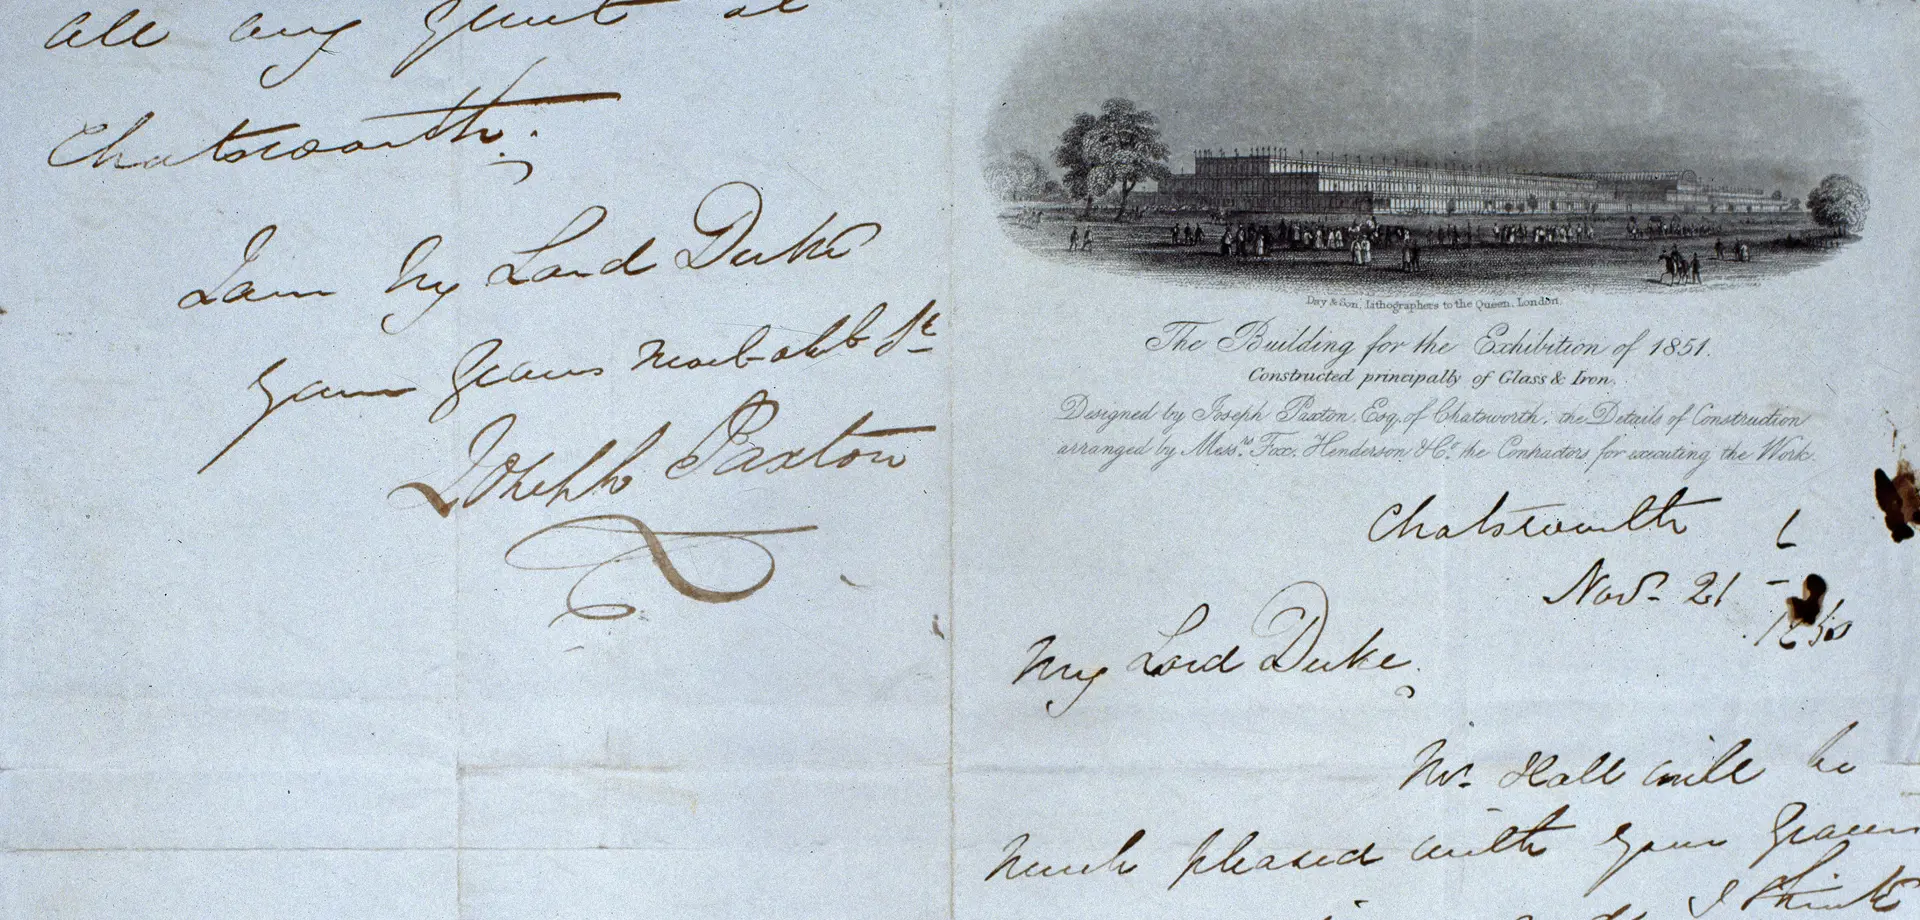 all any
Chatsworth.
I am My Lord Duke
your Graces most obt St
Joseph Paxton
Day & Son, Lithographers to the Queen, London.
The Building for the Exhibition of 1851.
Constructed principally of Glass & Iron.
Designed by Joseph Paxton, Esq. of Chatsworth; the Details of Construction
arranged by Messrs. Fox, Henderson & Co. the Contractors for executing the Work.
Chatsworth
Novr 21
1850
My Lord Duke,
Mr Hall will be
much pleased with your Graces
I think